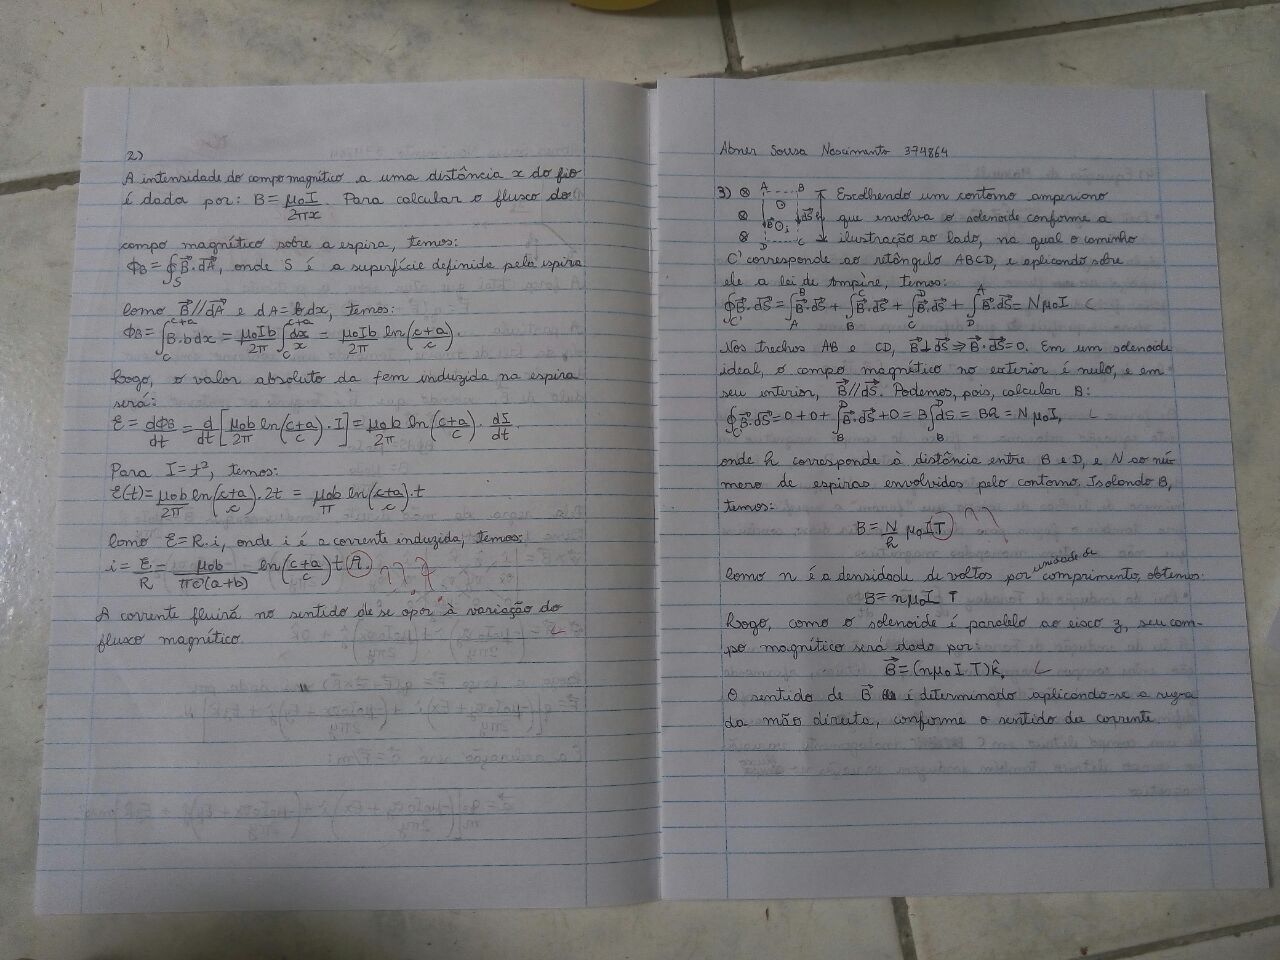 2)
A intensidade do campo magnético a uma distância x do fio
é dada por: B = μ₀I/2πx. Para calcular o fluxo do
campo magnético sobre a espira, temos:
Φ_B = ∮_S B⃗·dA⃗, onde S é a superfície definida pela espira
Como B⃗//dA⃗ e dA = b dx, temos:
Φ_B = ∫_c^{c+a} B·b dx = μ₀Ib/2π ∫_c^{c+a} dx/x = μ₀Ib/2π ln(c+a/c).
Logo, o valor absoluto da fem induzida na espira
será:
ℰ = dΦ_B/dt = d/dt [μ₀b/2π ln(c+a/c)·I] = μ₀b/2π ln(c+a/c)·dI/dt.
Para I = t², temos:
ℰ(t) = μ₀b/2π ln(c+a/c)·2t = μ₀b/π ln(c+a/c)·t
Como ℰ = R·i, onde i é a corrente induzida, temos:
i = ℰ/R = μ₀b/πσ(a+b) ln(c+a/c) t A. ???
A corrente fluirá no sentido de se opor à variação do
fluxo magnético.
Abner Sousa Nascimento 374864
3) A B Escolhendo um contorno amperiano
B⃗ i dS⃗ que envolva o solenoide conforme a
D C ilustração ao lado, na qual o caminho
C' corresponde ao retângulo ABCD, e aplicando sobre
ele a lei de Ampère, temos:
∮_C' B⃗·dS⃗ = ∫_A^B B⃗·dS⃗ + ∫_B^C B⃗·dS⃗ + ∫_C^D B⃗·dS⃗ + ∫_D^A B⃗·dS⃗ = Nμ₀I
Nos trechos AB e CD, B⃗⊥dS⃗ ⇒ B⃗·dS⃗ = 0. Em um solenoide
ideal, o campo magnético no exterior é nulo, e em
seu interior, B⃗//dS⃗. Podemos, pois, calcular B:
∮_C' B⃗·dS⃗ = 0+0+∫_B^D B⃗·dS⃗+0 = B∫_B^D dS = Bh = Nμ₀I,
onde h corresponde à distância entre B e D, e N ao nú-
mero de espiras envolvidas pelo contorno. Isolando B,
temos:
B = N/h μ₀I T ??
Como n é a densidade de voltas por unidade de comprimento, obtemos:
B = nμ₀I T
Logo, como o solenoide é paralelo ao eixo z, seu cam-
po magnético será dado por:
B⃗ = (nμ₀I T)k̂,
O sentido de B⃗ é determinado aplicando-se a regra
da mão direita, conforme o sentido da corrente.